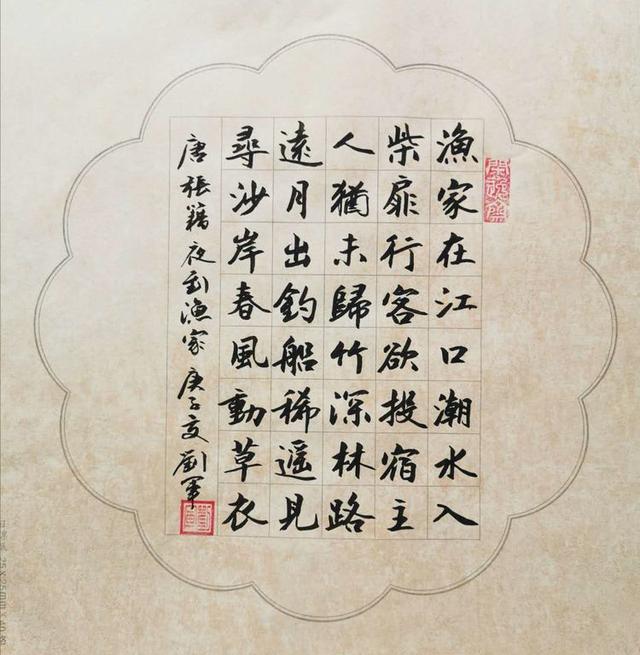 漁家在江口潮水入
柴扉行客欲投宿主
人猶未歸竹深林路
遠月出釣船稀遥見
尋沙岸春風動草衣
唐張籍夜到漁家庚子夏劉軍